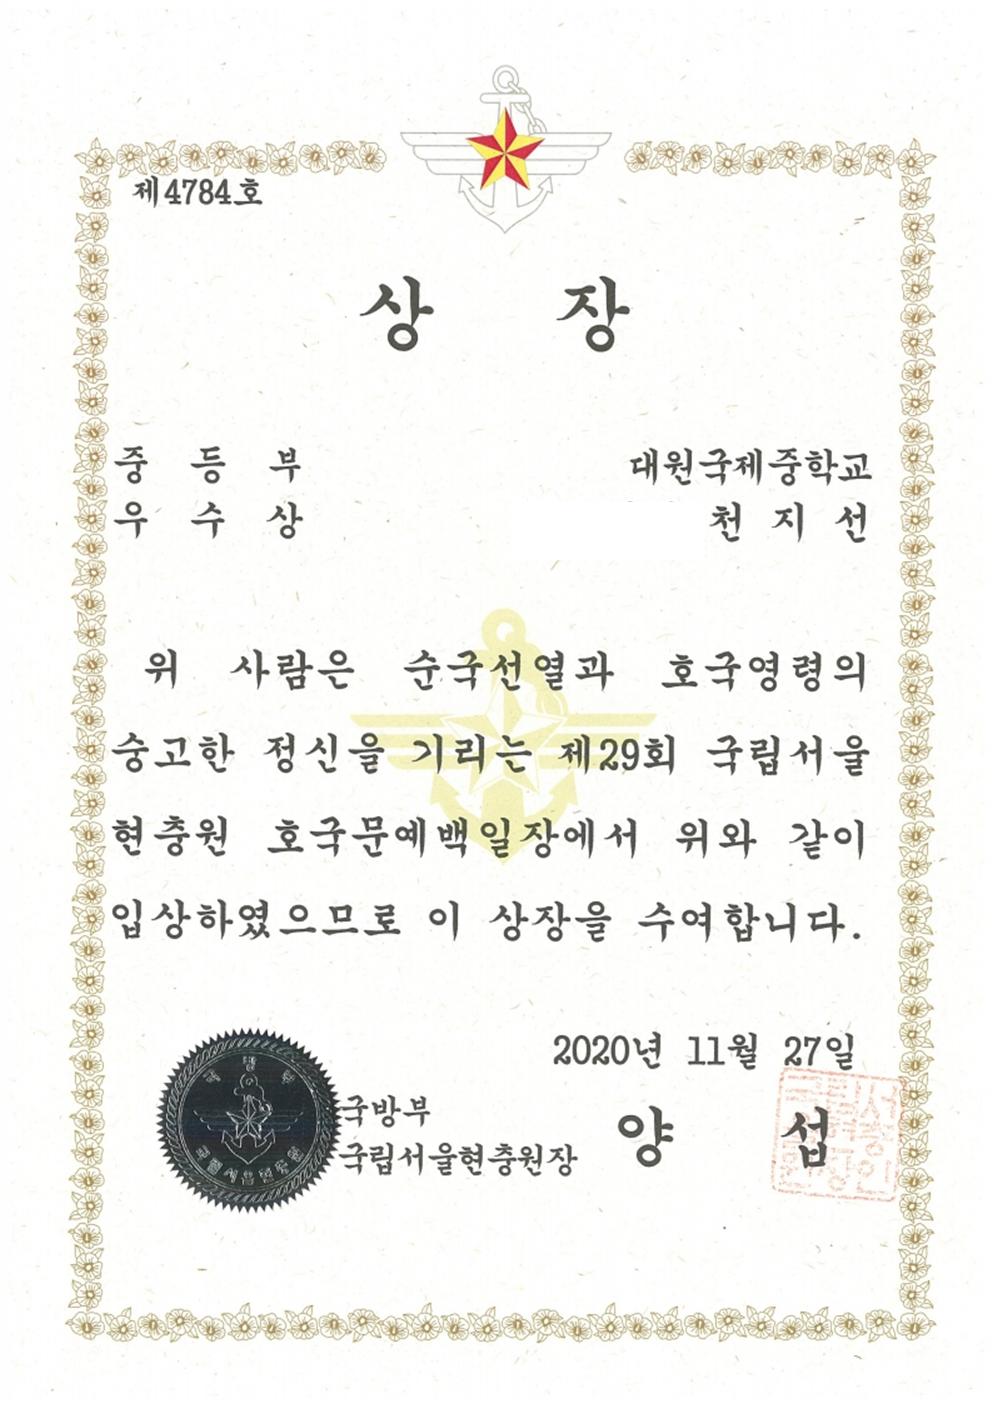 제4784호
상 장
중 등 부 대원국제중학교
우 수 상 천 지 선
위 사람은 순국선열과 호국영령의
숭고한 정신을 기리는 제29회 국립서울
현충원 호국문예백일장에서 위와 같이
입상하였으므로 이 상장을 수여합니다.
2020년 11월 27일
국방부
국립서울현충원장 양 섭
국방부
국립서울현충원